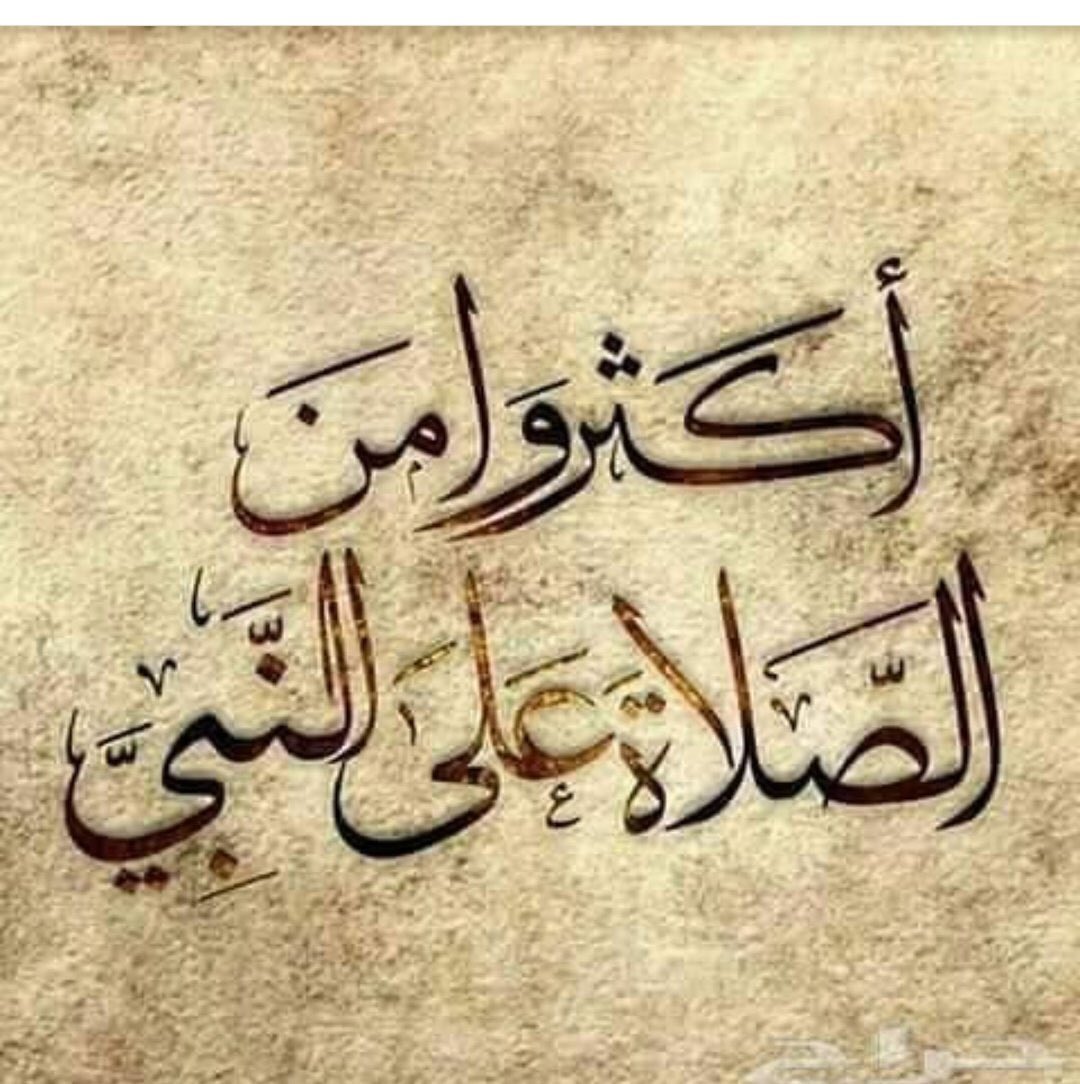 أكثروا من
الصَّلاة عَلى النَّبِيَّ
حراج